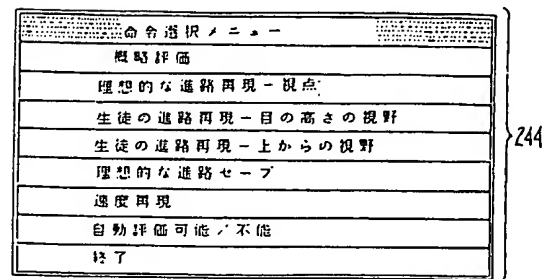 命令選択メニュー
概略評価
理想的な進路再現－視点
生徒の進路再現－目の高さの視野
生徒の進路再現－上からの視野
理想的な進路セーブ
速度再現
自動評価可能／不能
終了
244